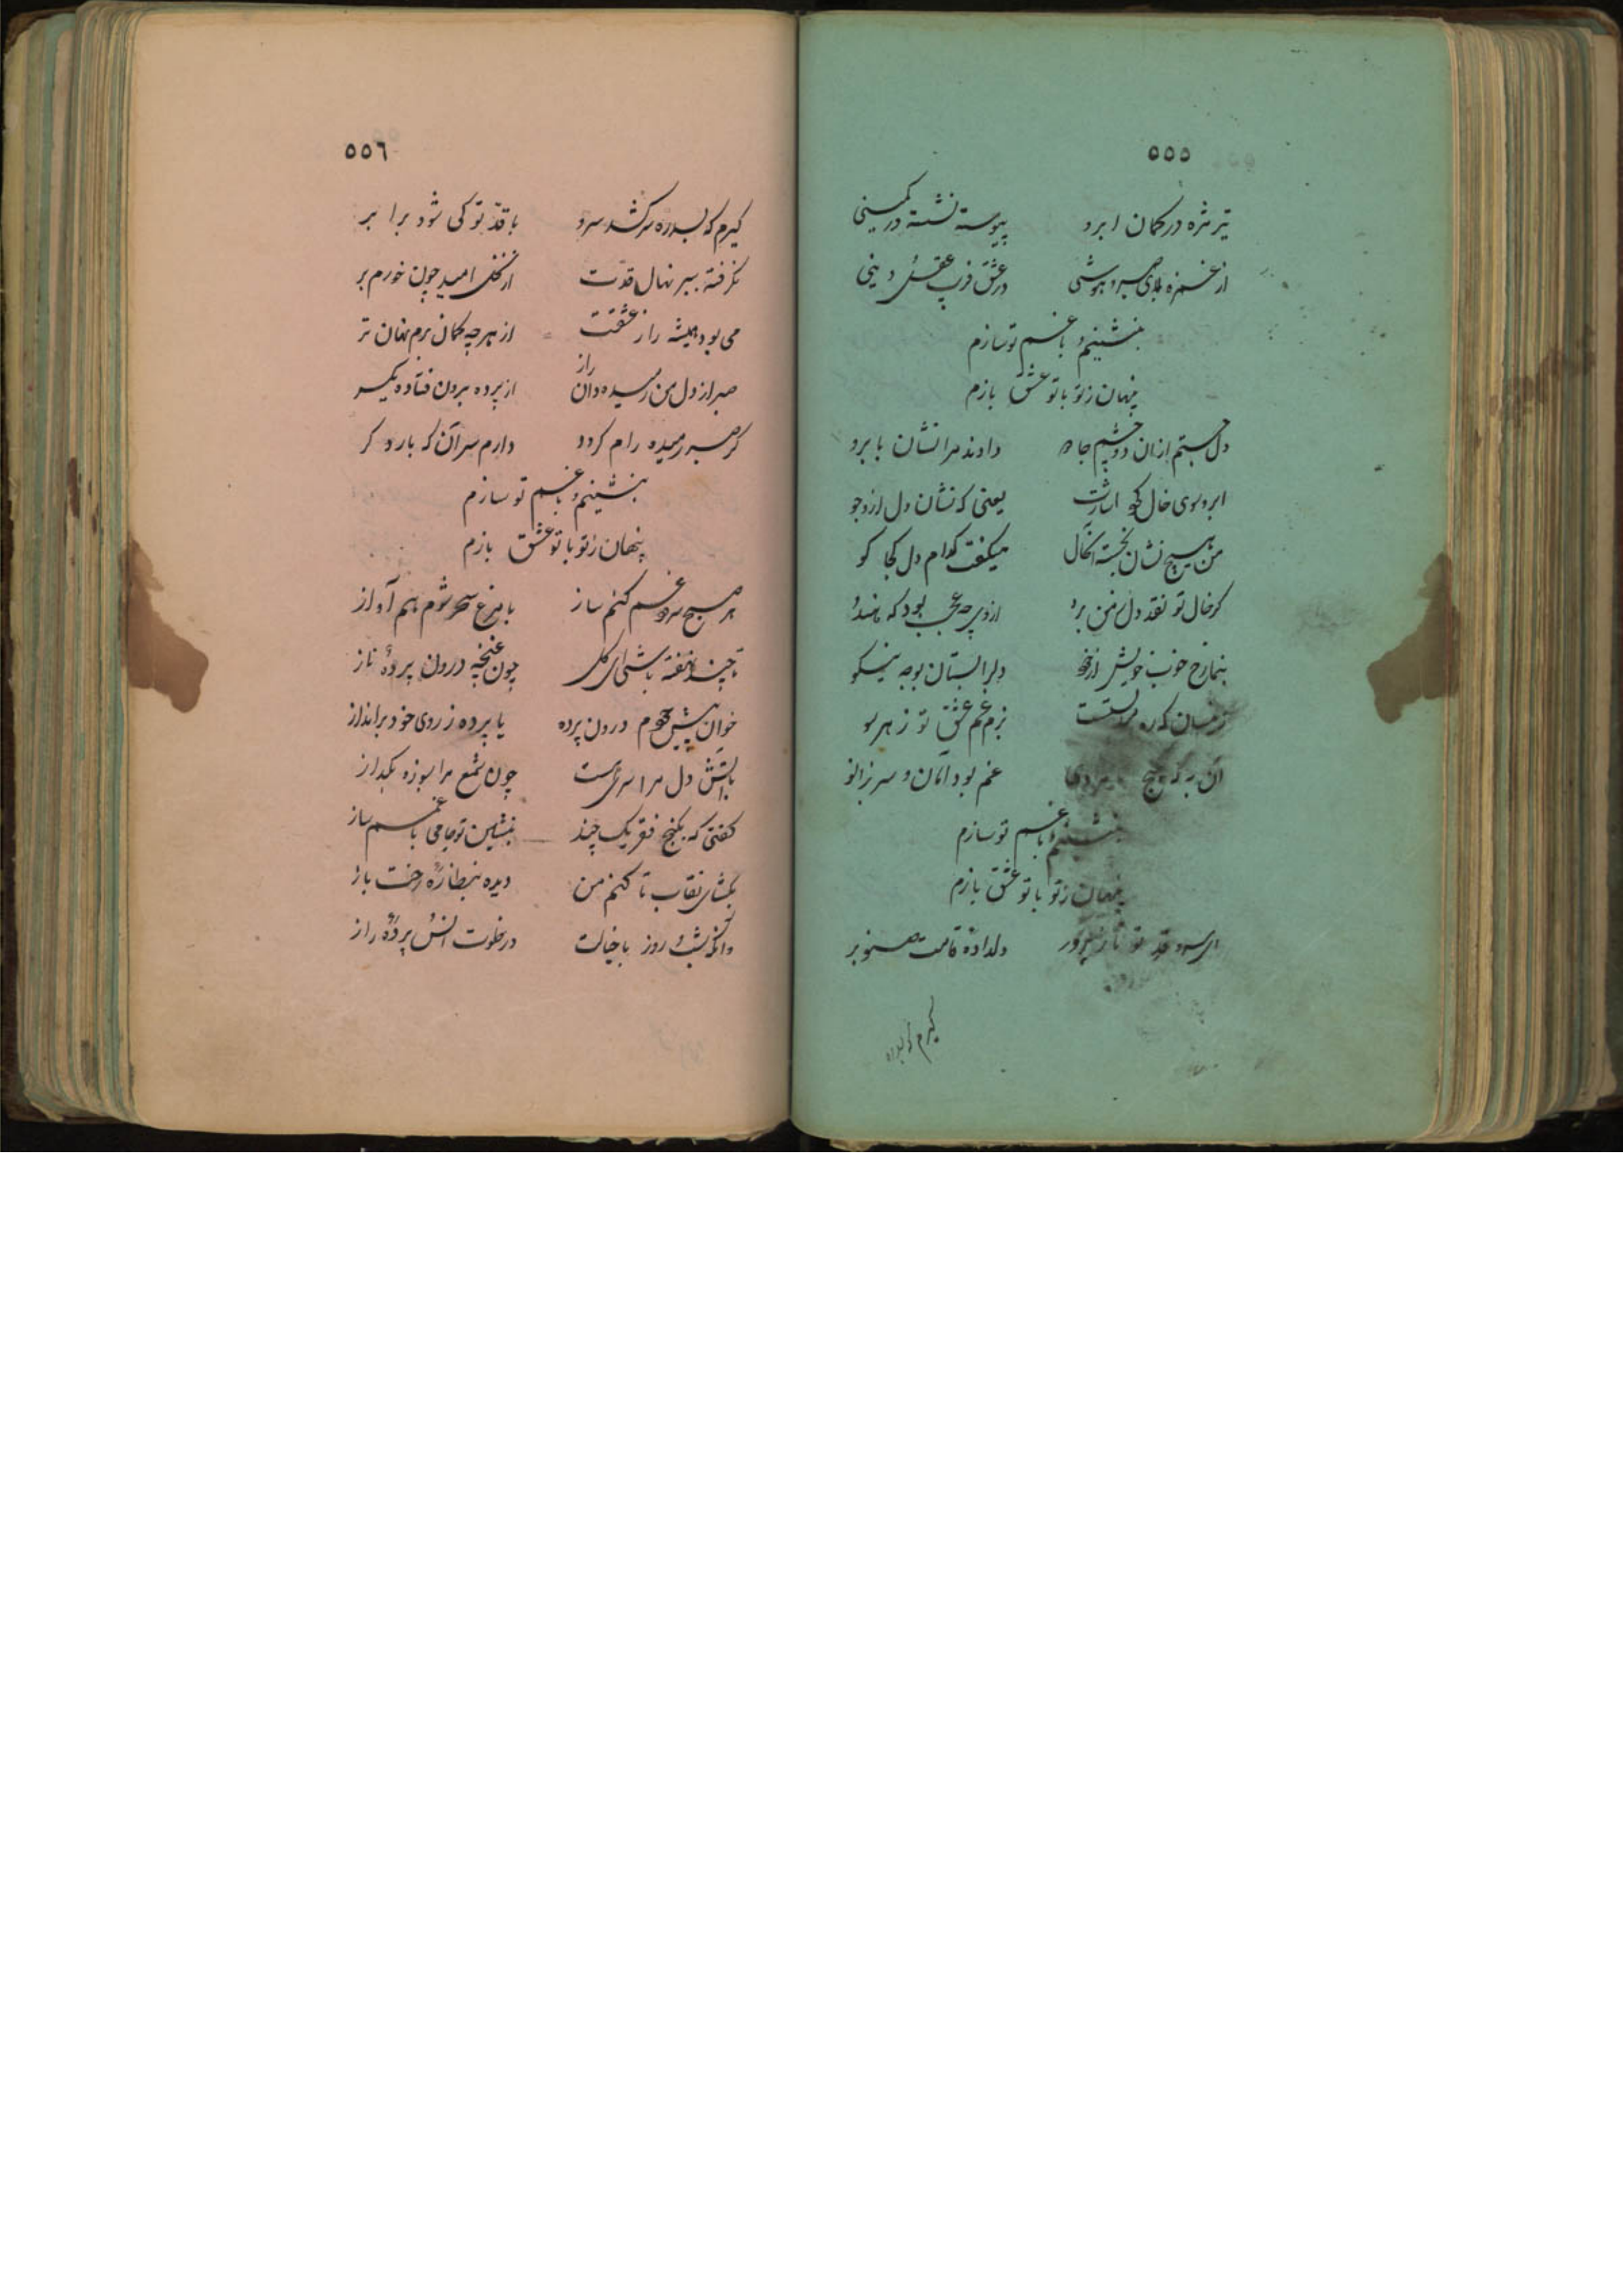 ٥٥٥
تیر مژه در کمان ابرو پیوسته نشسته در کمینی
از غمزه بلای صبر و هوشی در عشق فریب عقل و دینی
بنشینم و با غم تو سازم
پنهان ز تو با تو عشق بازم
دل جستم ازان دو چشم جادو دادند مرا نشان بابرو
ابرو سوی خال کرد اشارت یعنی که نشان دل ازو جو
من هیچ نشان نجسته آنخال میگفت کدام دل کجا کو
کر خال تو نقد دل ز من برد ازوی چه عجب بود که هندو
بنما رخ خوب خویش دلرا بستان بوجه نیکو
زینسان که ره غم عشق تو ز هر سو
آن به که غم تو بدامان و سر بزانو
بنشینم و با غم تو سازم
پنهان ز تو با تو عشق بازم
ای سرو قد تو ناز پرور دلدادهٔ قامتت صنوبر
کیرم که بسدره
٥٥٦
کیرم که بسدره سر کشد سرو با قدّ تو کی شود برابر
نکرفته ببر نهال قدّت از نخل امید چون خورم بر
می بود همیشه راز عشقت از هر چه کمان برم نهان تر
صبر از دل من رمیده و آن راز از پرده برون فتاده یکسر
کر صبر رمیده رام کردد دارم سر آن که بار دکر
بنشینم و با غم تو سازم
پنهان ز تو با تو عشق بازم
هر صبح سرود غم کنم ساز با مرغ سحر شوم هم آواز
تا چند نهفته باشی ای کل چون غنچه درون پردهٔ ناز
خوان پیش خودم درون پرده یا پرده ز روی خود برانداز
با آتش دل مرا سری هست چون شمع مرا بسوز و بکداز
کفتی که بکنج فقر یک چند بنشین تو جامی با غم ساز
بکشای نقاب تا کنم من دیده بنظارهٔ رخت باز
وانکه شب و روز با خیالت در خلوت انس و پردهٔ راز